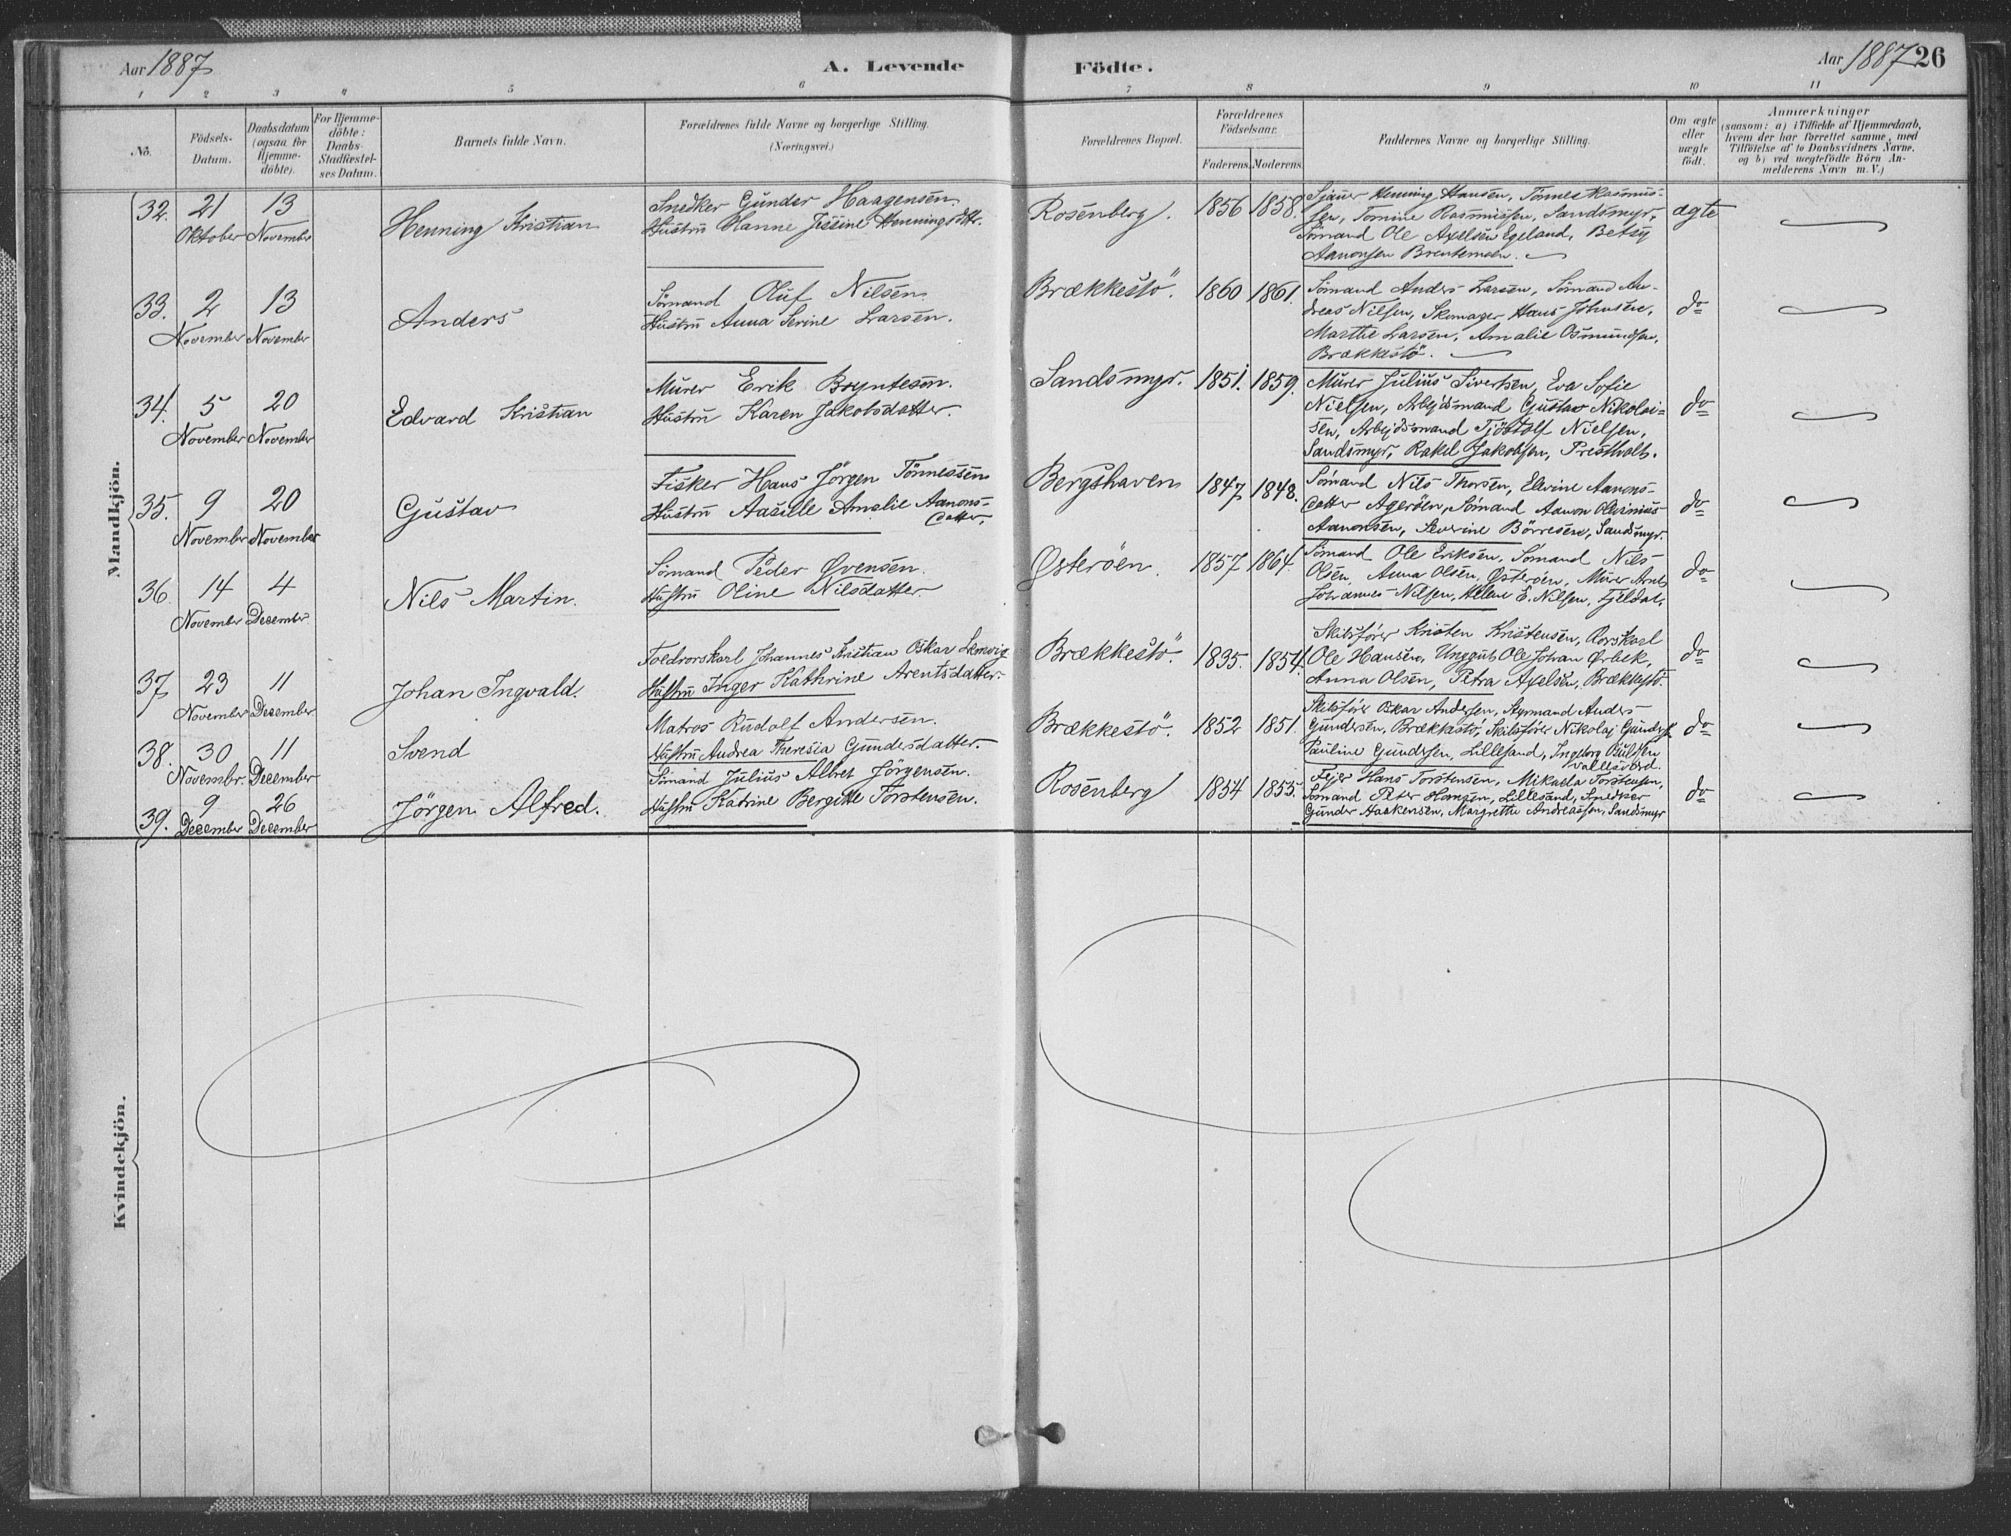 Aar 1887
A. Levende Födte.
Aar 1887 26
1 2 3 4 5 6 7 8 9 10 11
No.
Födsels-Datum.
Daabsdatum (ogsaa for Hjemme-döbte).
For Hjemme-döbte: Daabs-Stadfæstel-ses Datum.
Barnets fulde Navn.
Forældrenes fulde Navne og borgerlige Stilling.
(Næringsvei.)
Forældrenes Bopæl.
Forældrenes Födselsaar.
Faderens. Moderens.
Faddernes Navne og borgerlige Stilling.
Om ægte eller uægte födt.
Anmærkninger
(saasom: a) i Tilfælde af Hjemmedaab,
hvem der har forrettet samme, med
Tilföielse af to Daabsvidners Navne,
og b) ved uægtefödte Börn An-
melderens Navn m. V.)
Mandkjön.
32. 21 Oktober 13 November
Henning Kristian
Snedker Gunder Haagensen.
Hustru Hanne Jessine Henningsdttr.
Rosenberg. 1856 1858.
Sjauer Henning Hansen, Tönnes Rasmus-
sen, Tomine Rasmussen, Sandsmyr,
Sömand Ole Axelsen Egeland, Betsy
Aanonsen Brentemoen.
ægte
33. 2 November 13 November
Anders
Sömand Oluf Nilsen.
Hustru Anna Serine Larsen.
Brækkestö. 1860 1861.
Sömand Anders Larsen, Sömand An-
dreas Nilsen, Skomager Hans Johnsen,
Marthe Larsen, Amalie Osmundsen,
Brækkestö.
do
34. 5 November 20 November
Edvard Kristian
Murer Erik Bryntesen.
Hustru Karen Jakobsdatter.
Sandsmyr. 1851. 1859.
Murer Julius Sivertsen, Eva Sofie
Nielsen, Arbejdsmand Gustav Nikolai-
sen, Arbejdsmand Tjöstolf Nielsen,
Sandsmyr, Rakel Jakobsen, Prestholt.
do
35. 9 November 20 November
Gustav
Fisker Hans Jörgen Tönnessen
Hustru Aasille Amalie Aanons-
datter.
Bergshaven 1847 1848.
Sömand Nils Thorsen, Elevine Aanons-
datter Ageröen, Sömand Aanon Olevinius
Aanonsen, Severine Börresen, Sandsmyr.
do
36. 14 November 4 Desember
Nils Martin.
Sömand Peder Evensen.
Hustru Oline Nilsdatter
Österöen. 1857 1864.
Sömand Ole Eriksen, Sömand Nils
Olsen, Anna Olsen, Österöen, Murer Arnt
Johannes Nilsen, Helene E. Nilsen, Fjeldal.
do
37. 23 November 11 December
Johan Ingvald.
Toldrorskarl Johannes Kristian Oskar Lemvig
Hustru Inger Kathrine Arentsdatter.
Brækkestö. 1835. 1854.
Skibsförer Kristen Kristensen, Rorskarl
Ole Hansen, Unggut Ole Johan Örbek,
Anna Olsen, Petra Axelsen, Brækkestö.
do
38. 30 Novembr. 11 December
Svend
Matros Rudolf Andersen.
Hustru Andrea Theresia Gundersdatter.
Brækkestö. 1852 1851.
Skibsför. Oskar Andersen, Styrmand Anders
Gundersen, Brækkestö, Skibsförer Nikolaj Gunders.
Pauline Gundersen, Lillesand, Ingeborg Osuldsen
Vallesværd.
do
39. 9 December 26 December
Jörgen Alfred.
Sömand Julius Albret Jörgensen.
Hustru Katrine Bergitte Torstensen.
Rosenberg 1854 1855.
Fejer Hans Torstensen, Mikaela Torstensen,
Sömand Peter Hansen, Lillesand, Snedker
Gunder Haakensen, Margrethe Andreassen, Sandsmyr
do
Kvindekjön.